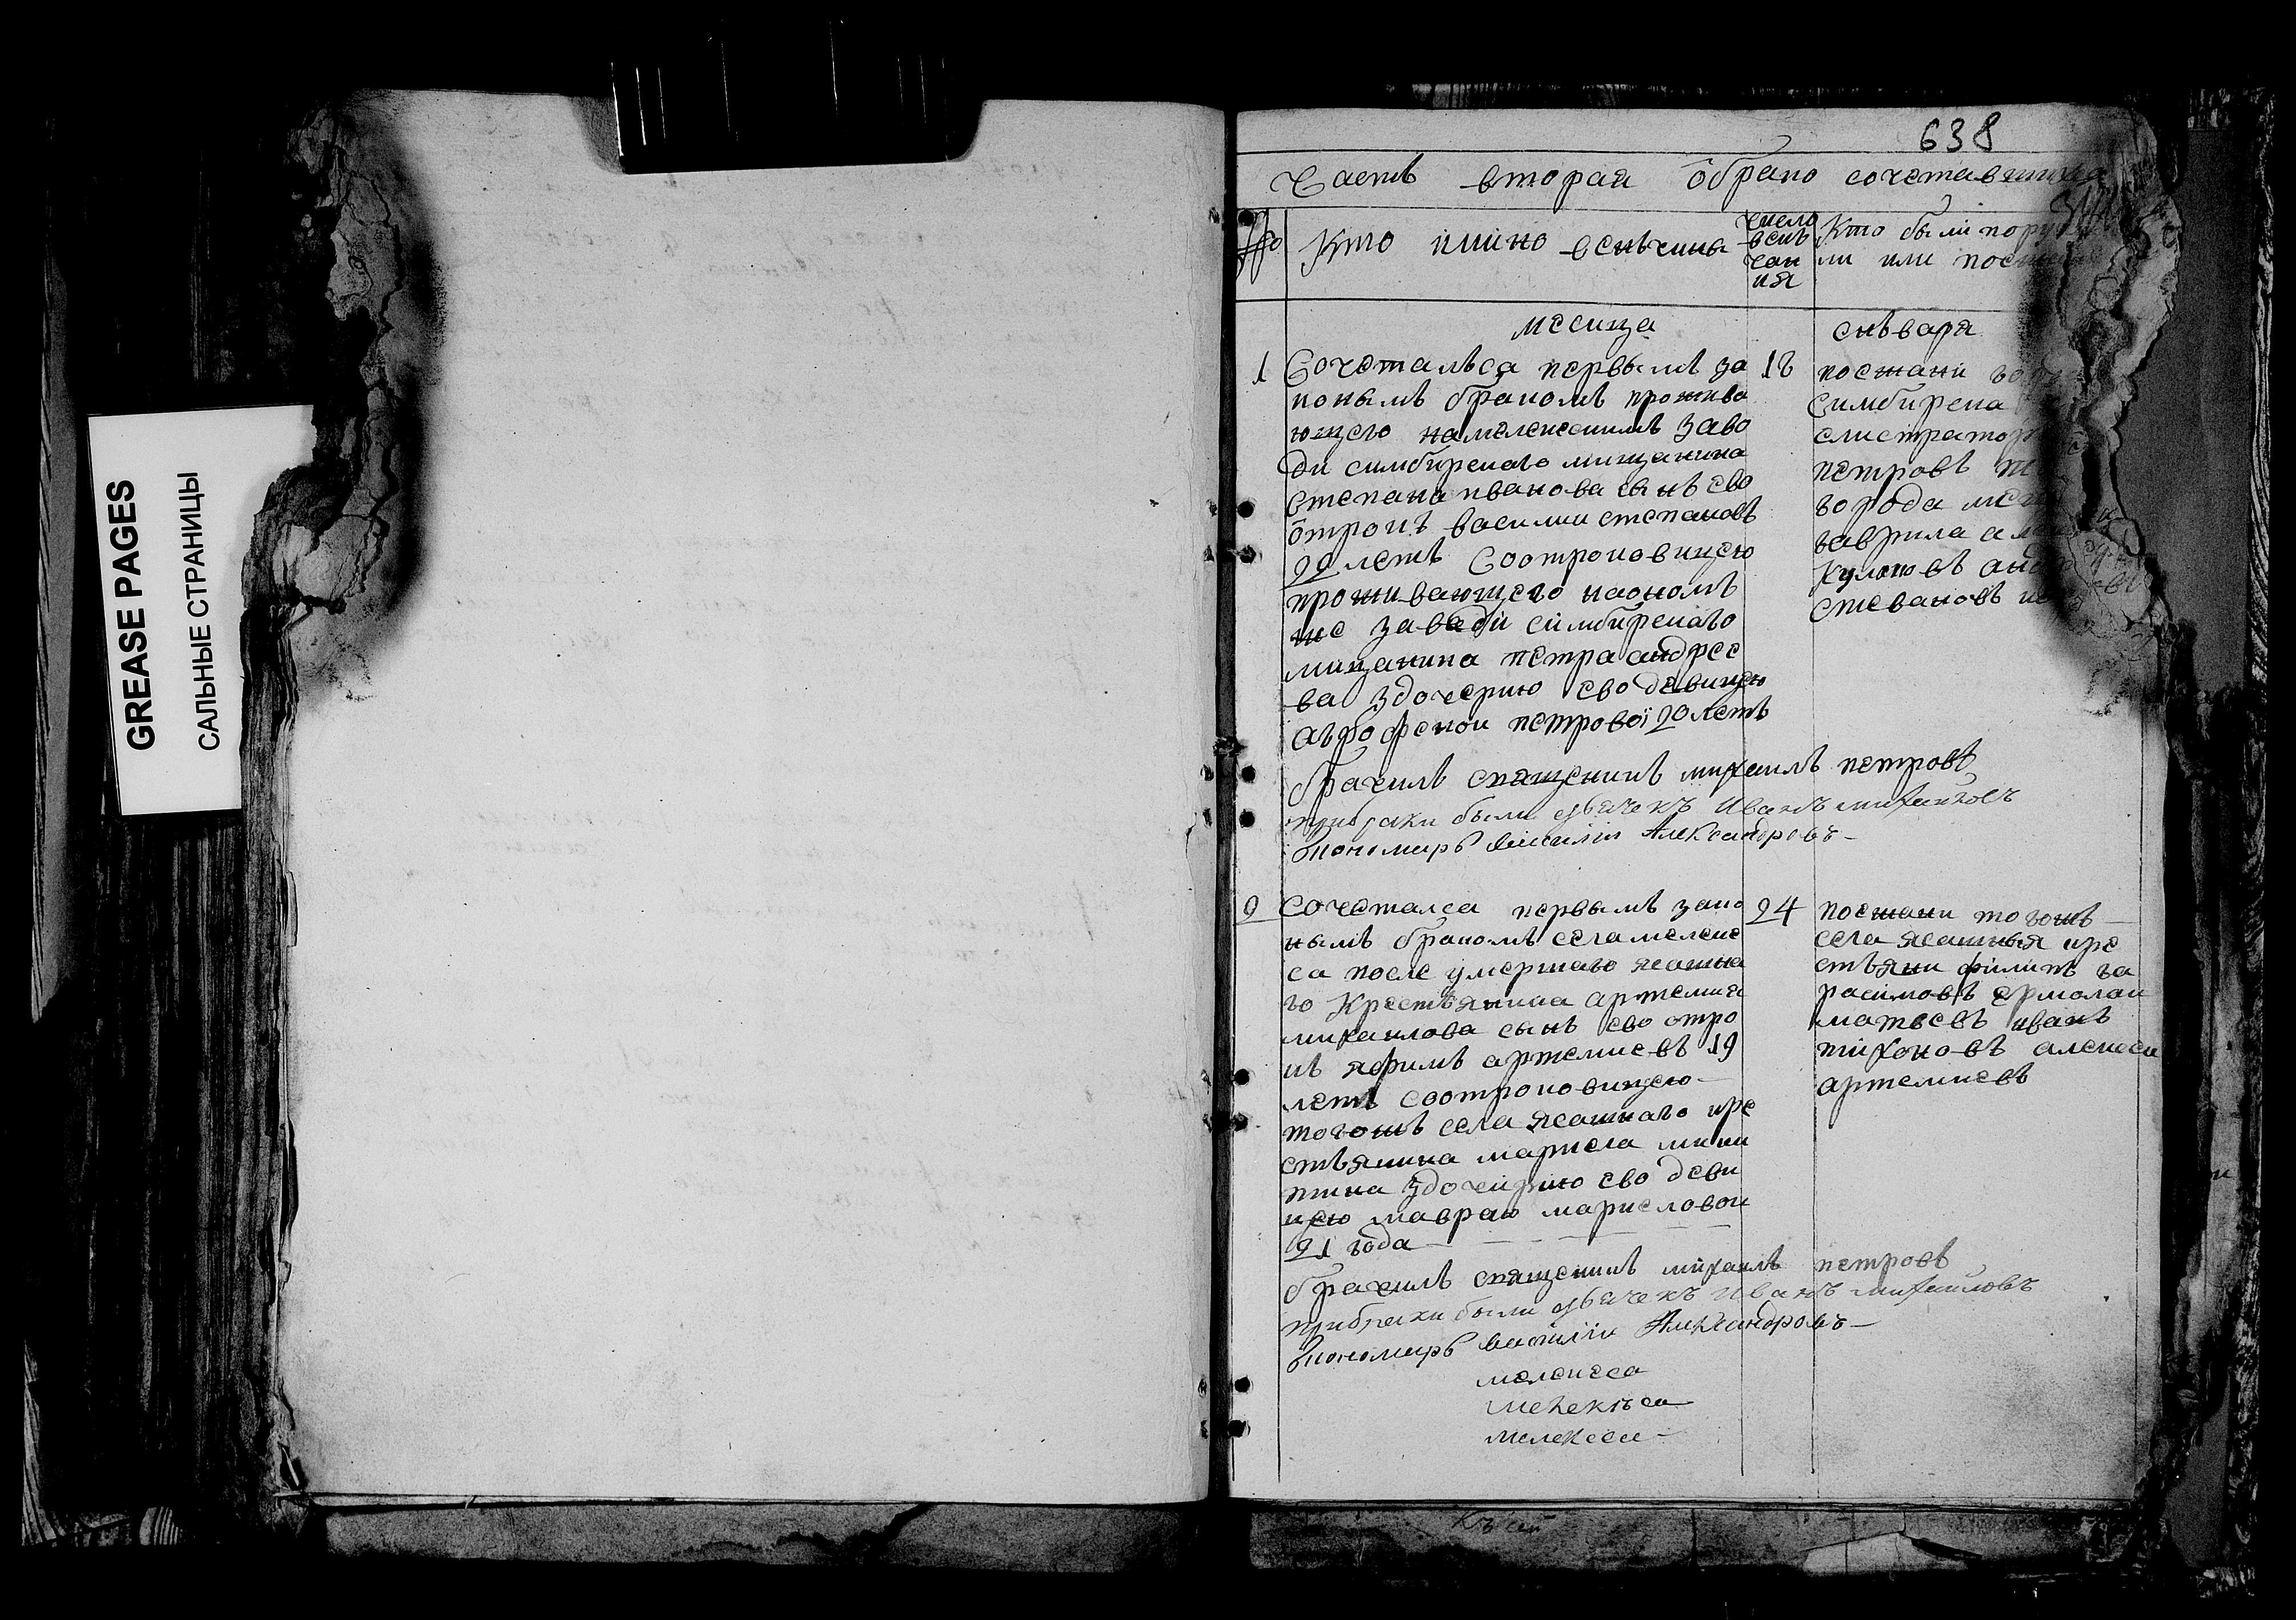 GREASE PAGES
САЛЬНЫЕ СТРАНИЦЫ
638
Часть вторая о брако сочетавшихся
№
Кто имѣно венчаны
число венчания
Кто были пору
ли или поезжане
месица
генъваря
1
Сочеталъса первымъ за
коннымъ бракомъ прожива
ющего на мелекескимъ заво
ди симбирскаго мищанина
степана иванова сынъ ево
отрокъ василии степановъ
22 летъ Сотроковицею
проживающего наономъ
же заводи симбирскаго
мищанина петра андрее
ва здочерию ево девицею
аграфеной петровой 20 летъ
18
поезжани горо
симбирска
гистратор
петровъ
города
гаврила
Куликовъ
степановъ
брачилъ священникъ михаилъ петровъ
прибраки были дьячекъ Иванъ михаиловъ
пономарь василии Александровъ
2
Сочеталса первымъ зако
нымъ бракомъ села мелеке
са после умершаго ясашна
го Крестьянина артемия
михаилова сынъ ево отро
къ яфимъ артемиевъ 19
летъ соотроковицею
тогожъ села ясашнаго кре
стьянина маркела мики
тина здочерию ево деви
цею маврою маркеловои
21 года
24
поезжани тогожъ
села ясашныя кре
стьяни филипъ га
расимовъ ермолаи
матвеевъ иванъ
тихоновъ алексеи
артемиевъ
брачилъ священникъ михаилъ петровъ
прибраки были дьячекъ Иванъ михаиловъ
пономарь василии Александровъ
мелекеса
мелекъса
мелекеса